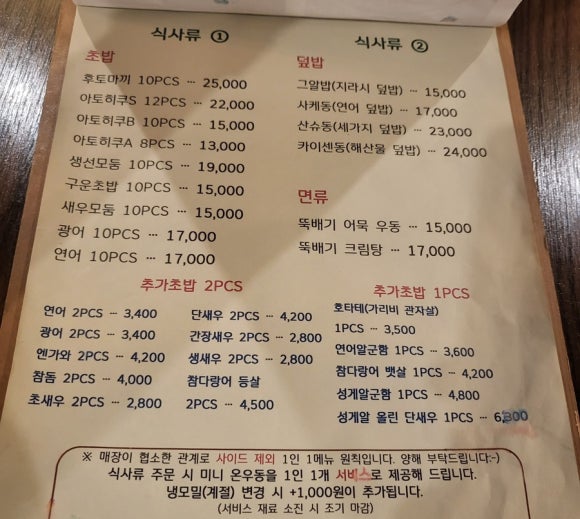 식사류 ①
초밥
후토마끼 10PCS ··· 25,000
아토히쿠S 12PCS ··· 22,000
아토히쿠B 10PCS ··· 15,000
아토히쿠A 8PCS ··· 13,000
생선모둠 10PCS ··· 19,000
구운초밥 10PCS ··· 15,000
새우모둠 10PCS ··· 15,000
광어 10PCS ··· 17,000
연어 10PCS ··· 17,000
식사류 ②
덮밥
그알밥(지라시 덮밥) ··· 15,000
사케동(연어 덮밥) ··· 17,000
산슈동(세가지 덮밥) ··· 23,000
카이센동(해산물 덮밥) ··· 24,000
면류
뚝배기 어묵 우동 ··· 15,000
뚝배기 크림탕 ··· 17,000
추가초밥 2PCS
연어 2PCS ··· 3,400
광어 2PCS ··· 3,400
엔가와 2PCS ··· 4,200
참돔 2PCS ··· 4,000
초새우 2PCS ··· 2,800
단새우 2PCS ··· 4,200
간장새우 2PCS ··· 2,800
생새우 2PCS ··· 2,800
참다랑어 등살
2PCS ··· 4,500
추가초밥 1PCS
호타테(가리비 관자살)
1PCS ··· 3,500
연어알군함 1PCS ··· 3,600
참다랑어 뱃살 1PCS ··· 4,200
성게알군함 1PCS ··· 4,800
성게알 올린 단새우 1PCS ···
※ 매장이 협소한 관계로 사이드 제외 1인 1메뉴 원칙입니다. 양해 부탁드립니다:-)
식사류 주문 시 미니 온우동을 1인 1개 서비스로 제공해 드립니다.
냉모밀(계절) 변경 시 +1,000원이 추가됩니다.
(서비스 재료 소진 시 조기 마감)